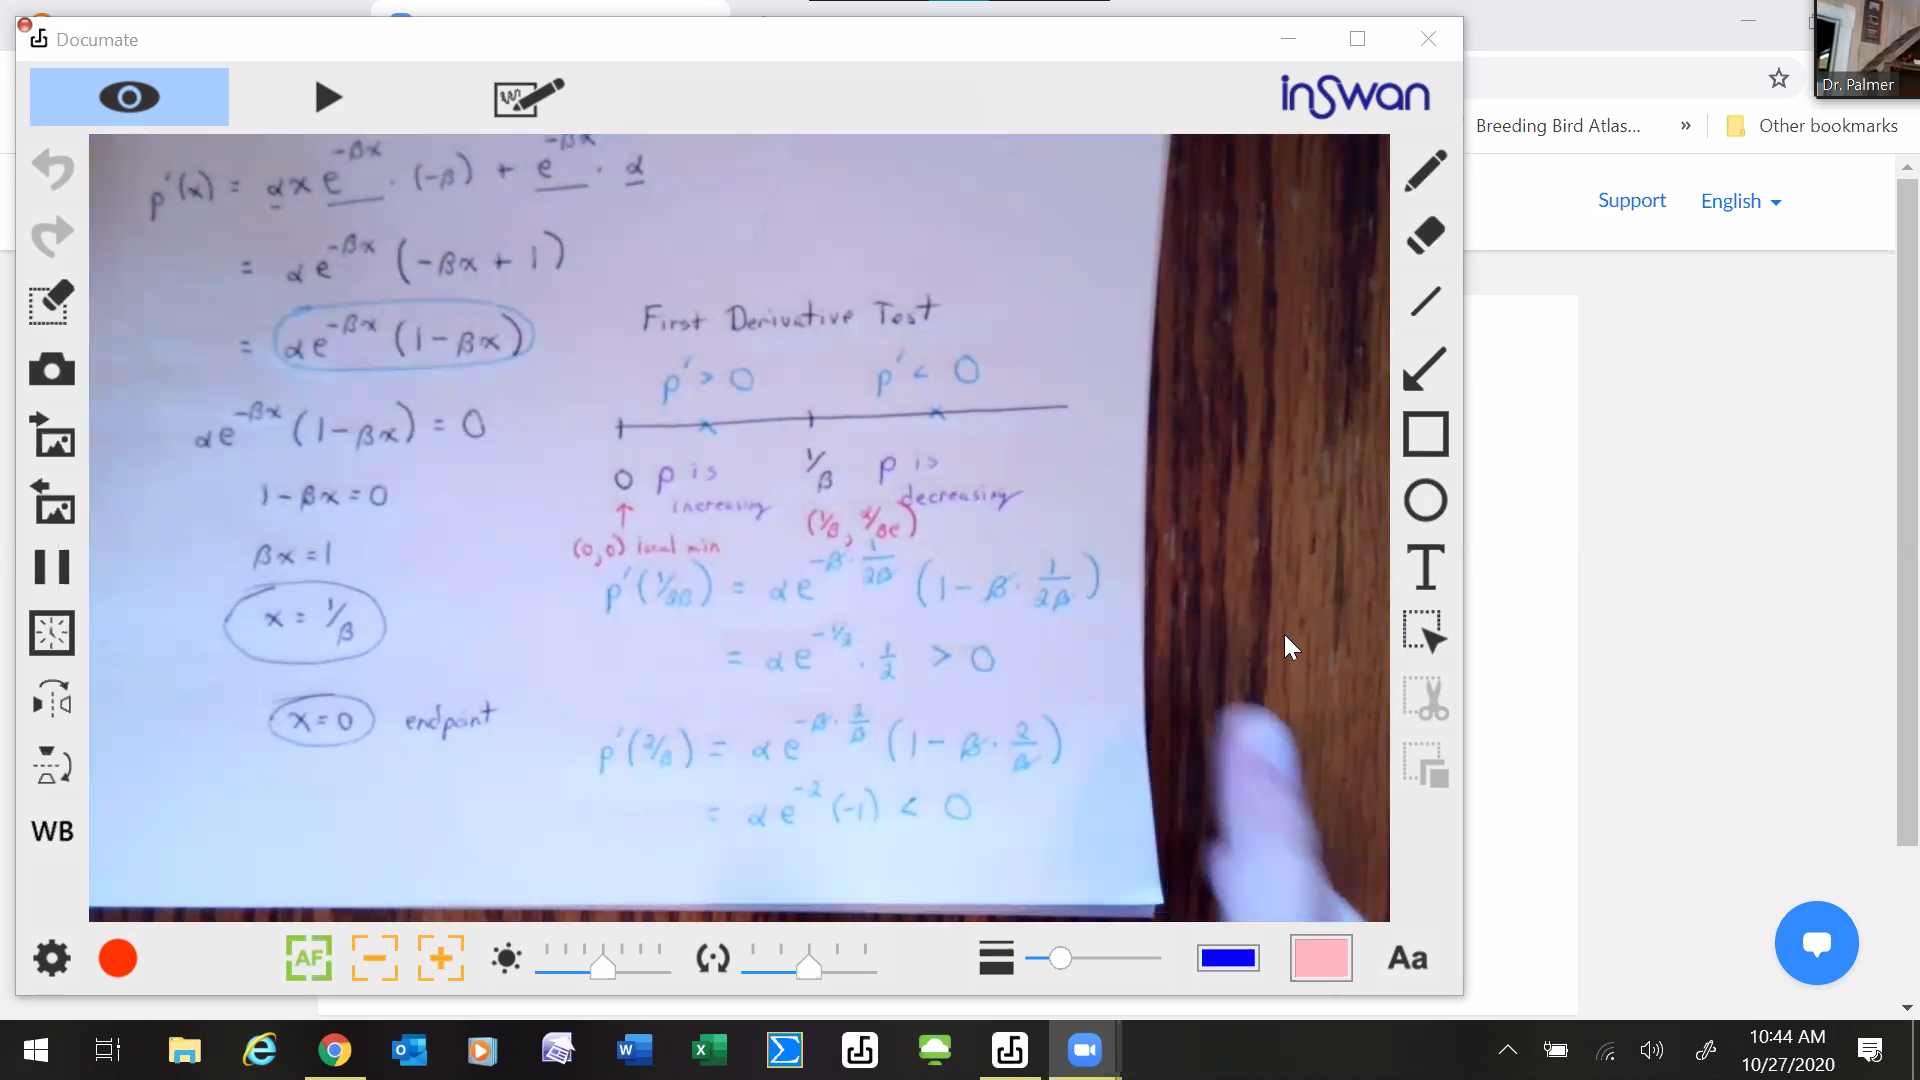 Documate
Dr. Palmer
inSwan
Breeding Bird Atlas...
»
Other bookmarks
Support
English
p'(x) = αx e^{-βx} · (-β) + e^{-βx} · α
= αe^{-βx} (-βx + 1)
= αe^{-βx} (1 - βx)
αe^{-βx} (1 - βx) = 0
1 - βx = 0
βx = 1
x = 1/β
x = 0 endpoint
First Derivative Test
p' > 0 p' < 0
0 1/β
p is increasing
p is decreasing
↑
(0,0) local min
(1/β, α/βe)
p'(1/2β) = αe^{-β · 1/2β} (1 - β · 1/2β)
= αe^{-1/2} · 1/2 > 0
p'(2/β) = αe^{-β · 2/β} (1 - β · 2/β)
= αe^{-2} (-1) < 0
T
WB
AF
Aa
10:44 AM
10/27/2020